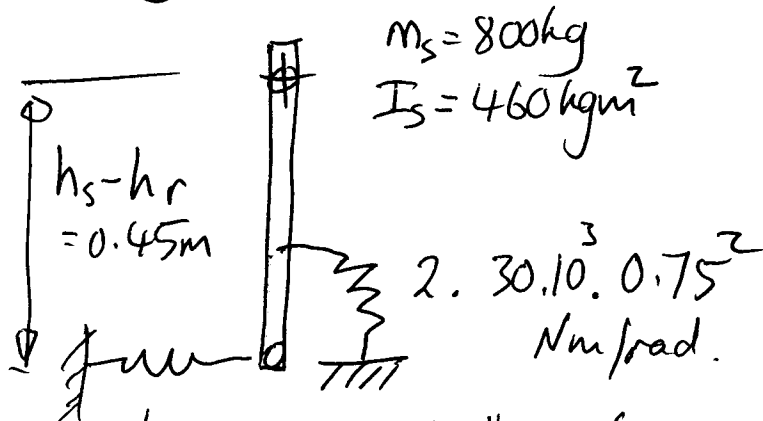 mₛ = 800kg
Iₛ = 460kgm²
hₛ-hᵣ
= 0.45m
2. 30.10³. 0.75²
Nm/rad.